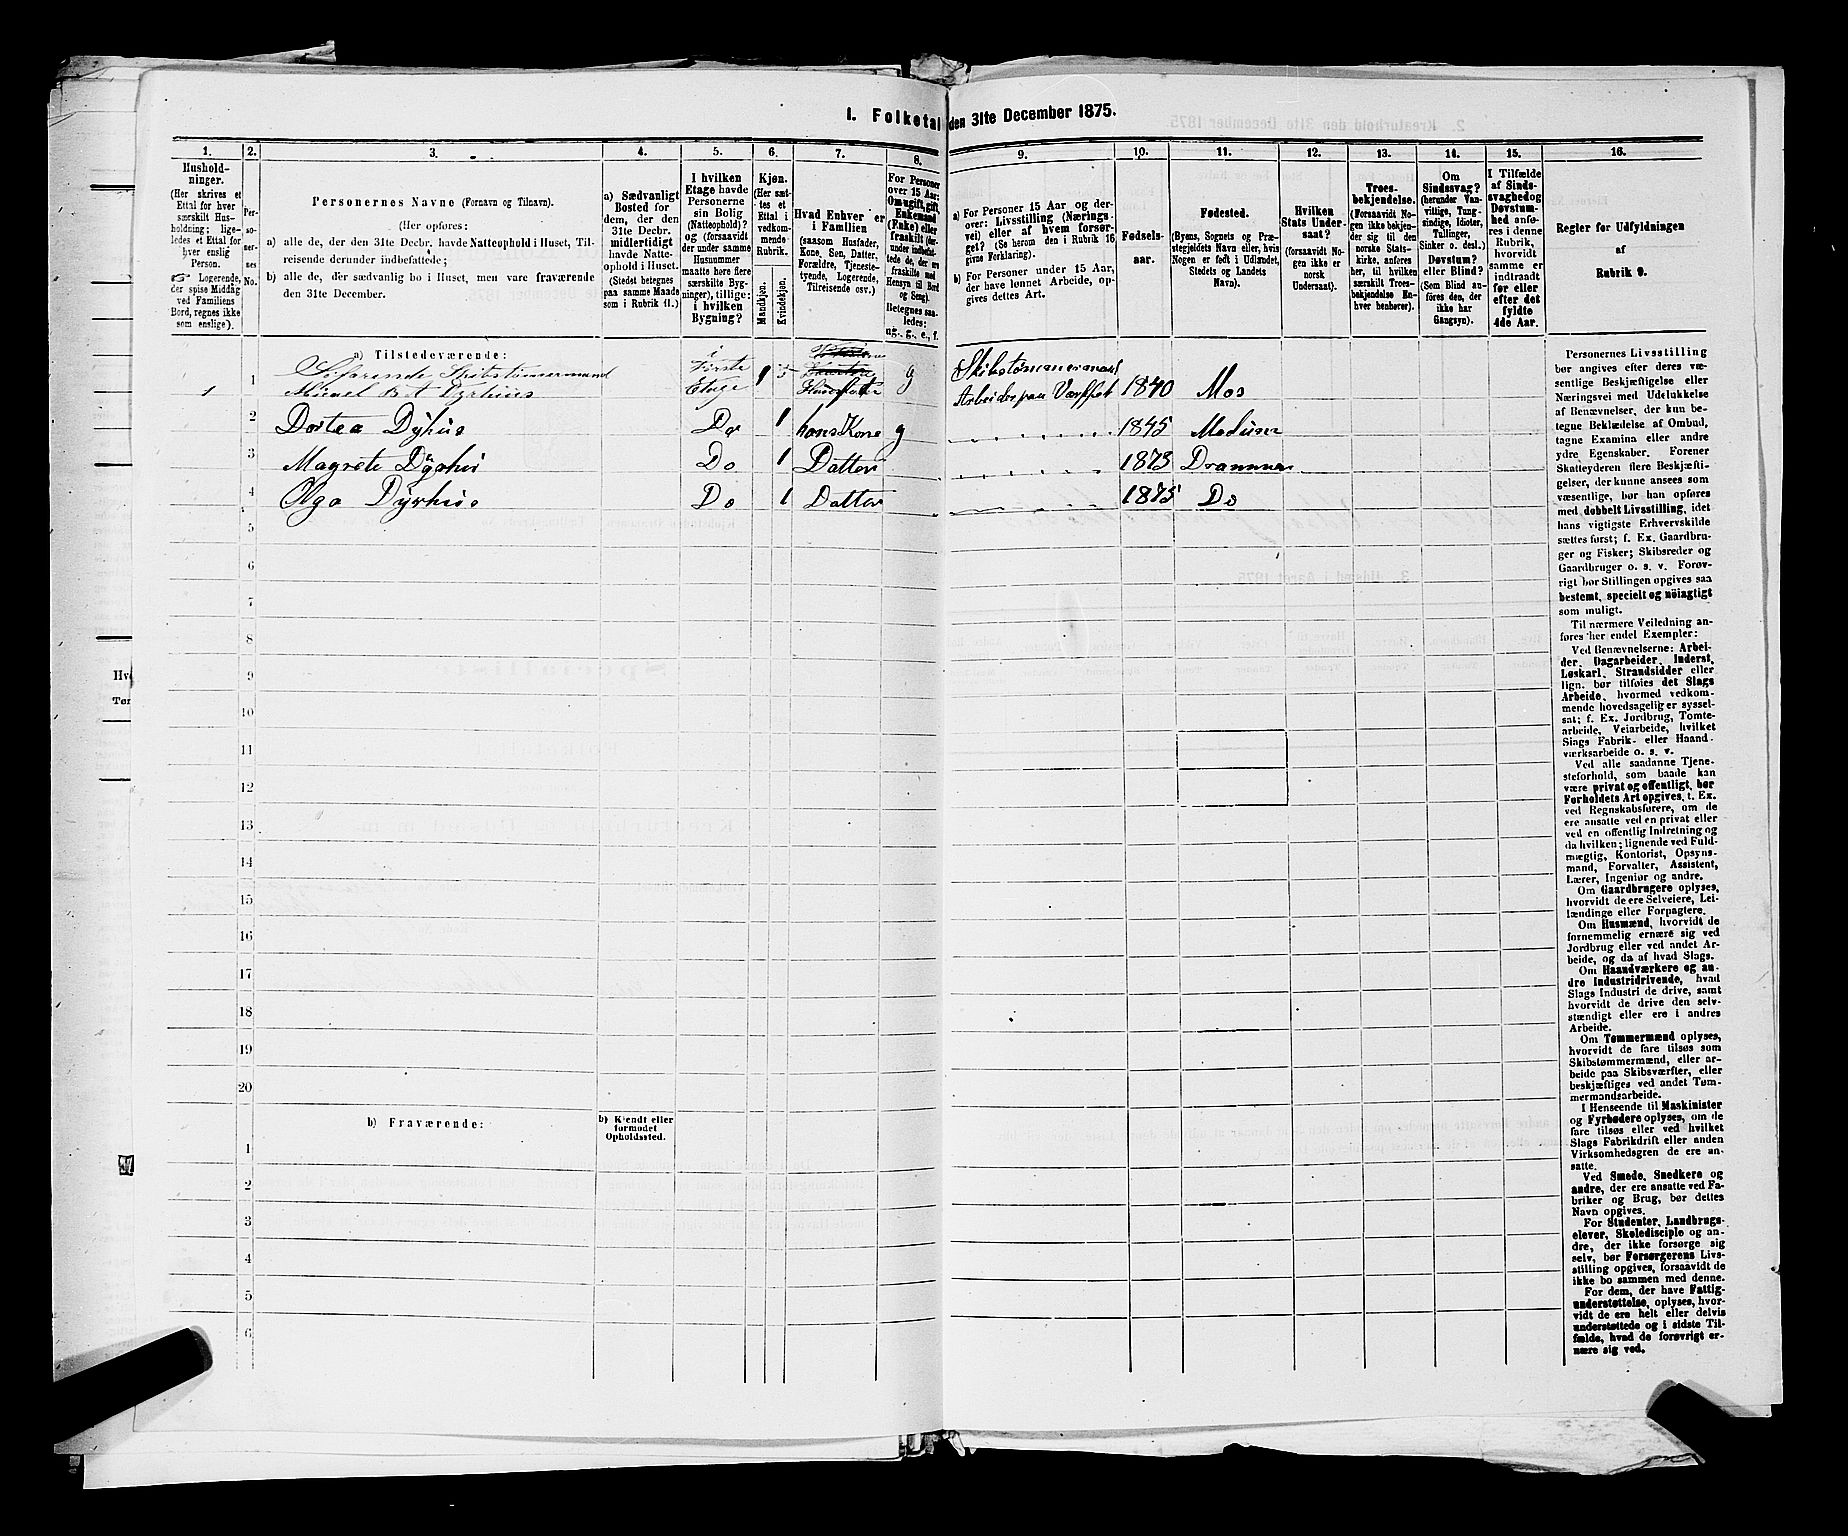 1. Folketal den 31te December 1875.
1. 2. 3. 4. 5. 6. 7. 8. 9. 10. 11. 12. 13. 14. 15. 16.
Hushold-
ninger.
(Her skrives et
Ettal for hver
særskilt Hus-
holdning; lige-
ledes et Ettal for
hver enslig
Person.
☞ Logerende,
der spise Middag
ved Familiens
Bord, regnes ikke
som enslige).
Per-
so-
ner-
nes
No.
Personernes Navne (Fornavn og Tilnavn).
(Her opføres:
a) alle de, der den 31te Decbr. havde Natteophold i Huset, Til-
reisende derunder indbefattede;
b) alle de, der sædvanlig bo i Huset, men vare fraværende
den 31te December.
a) Sædvanligt
Bosted for
dem, der den
31te Decbr.
midlertidigt
havde Natte-
ophold i Huset.
(Stedet betegnes
paa samme Maade
som i Rubrik 11.)
I hvilken
Etage havde
Personerne
sin Bolig
(Natteophold)?
og (forsaavidt
der under samme
Husnummer
maatte høre flere
særskilte Byg-
ninger), tillige:
i hvilken
Bygning?
Kjøn.
(Her sæt-
tes et
Ettal i
vedkom-
mende
Rubrik.
Mandkjøn.
Kvindekjøn.
Hvad Enhver er
i Familien
(saasom Husfader,
Kone, Søn, Datter,
Forældre, Tjeneste-
tyende, Logerende,
Tilreisende osv.)
For Personer
over 15 Aar:
Om ugift, gift,
Enkemand
(Enke) eller
fraskilt (der-
under indbefat-
tede de, der ere
fraskilte med
Hensyn til Bord
og Seng).
Betegnes saa-
ledes:
ug., g., e., f.
a) For Personer 15 Aar og der-
over: Livsstilling (Nærings-
vei) eller af hvem forsør-
get? (Se herom den i Rubrik 16
givne Forklaring).
b) For Personer under 15 Aar,
der have lønnet Arbeide, op-
gives dettes Art.
Fødsels-
aar.
Fødested.
(Byens, Sognets og Præ-
stegjeldets Navn eller, hvis
Nogen er født i Udlandet,
Stedets og Landets
Navn).
Hvilken
Stats Under-
saat?
(forsaavidt No-
gen ikke er
norsk
Undersaat).
Troes-
bekjendelse.
(Forsaavidt No-
gen ikke bekjen-
der sig til den
norske Stats-
kirke, anføres
her, til hvilken
særskilt Troes-
bekjendelse En-
hver henhører).
Om
Sindssvag?
(herunder Van-
vittige, Tung-
sindige, Idioter,
Tullinger,
Sinker o. desl.)
Døvstum?
eller Blind?
(Som Blind an-
føres den, der
ikke har
Gangsyn).
I Tilfælde
af Sinds-
svaghed og
Døvstum-
hed anfø-
res i denne
Rubrik,
hvorvidt
samme er
indtraadt
før eller
efter det
fyldte
4de Aar.
Regler for Udfyldningen
af
Rubrik 9.
a) Tilstedeværende:
Søfarende Skibstømmermand
1 1 Dyrhuus i Første Etage 1 g Skibstømmermand Arbeider paa Værftet 1840 Mos
2 Dortea Dyhus Do 1 hans Kone g 1845 Modum
3 Magrete Dyrhus Do 1 Datter 1873 Drammen
4 Olga Dyrhus Do 1 Datter 1875 Do
5
6
7
8
9
10
11
12
13
14
15
16
17
18
19
20
b) Fraværende:
b) Kjendt eller
formodet
Opholdssted.
1
2
3
4
5
6
Personernes Livsstilling
bør angives efter deres væ-
sentlige Beskjæftigelse eller
Næringsvei med Udelukkelse
af Benævnelser, der kun be-
tegne Beklædelse af Ombud,
tagne Examina eller andre
ydre Egenskaber. Forener
Skatteyderen flere Beskjæfti-
gelser, der kunne ansees som
væsentlige, bør han opføres
med dobbelt Livsstilling, idet
hans vigtigste Erhvervskilde
sættes først; f. Ex. Gaardbru-
ger og Fisker; Skibsreder og
Gaardbruger o. s. v. Forøv-
rigt bør Stillingen opgives saa
bestemt, specielt og nöiagtigt
som muligt.
Til nærmere Veiledning an-
føres her endel Exempler:
Ved Benævnelserne: Arbei-
der, Dagarbeider, Inderst,
Løskarl, Strandsidder eller
lign. bør tilføies det Slags
Arbeide, hvormed vedkom-
mende hovedsagelig er syssel-
sat; f. Ex. Jordbrug, Tomte-
arbeide, Veiarbeide, hvilket
Slags Fabrik- eller Haand-
værksarbeide o. s. v.
Ved alle saadanne Tjene-
steforhold, som baade kan
være privat og offentligt, bør
Forholdets Art opgives, t. Ex.
ved Regnskabsførere, om de
ere ansatte ved en privat eller
ved en offentlig Indretning og
da hvilken; lignende ved Fuld-
mægtig, Kontorist, Opsyns-
mand, Forvalter, Assistent,
Lærer, Ingeniør og andre.
Om Gaardbrugere oplyses,
hvorvidt de ere Selveiere, Lei-
lændinge eller Forpagtere.
Om Husmænd, hvorvidt de
fornemmelig ernære sig ved
Jordbrug eller ved andet Ar-
beide, og da af hvad Slags.
Om Haandværkere og an-
dre Industridrivende, hvad
Slags Industri de drive, samt
hvorvidt de drive den selv-
stændigt eller ere i andres
Arbeide.
Om Tømmermænd oplyses,
hvorvidt de fare tilsøs som
Skibstømmermænd, eller ar-
beide paa Skibsværfter, eller
beskjæftiges ved andet Tøm-
mermandsarbeide.
I Henseende til Maskinister
og Fyrbødere oplyses, om de
fare tilsøs eller ved hvilket
Slags Fabrikdrift eller anden
Virksomhedsgren de ere an-
satte.
Ved Smede, Snedkere og
andre, der ere ansatte ved Fa-
briker og Brug, bør dettes
Navn opgives.
For Studenter, Landbrugs-
elever, Skoledisciple og an-
dre, der ikke forsørge sig
selv, bør Forsørgerens Livs-
stilling opgives, forsaavidt de
ikke bo sammen med denne.
For dem, der have Fattig-
understøttelse, oplyses, hvor-
vidt de ere helt eller delvis
understøttede og i sidste Til-
fælde, hvad de forøvrigt er-
nære sig ved.